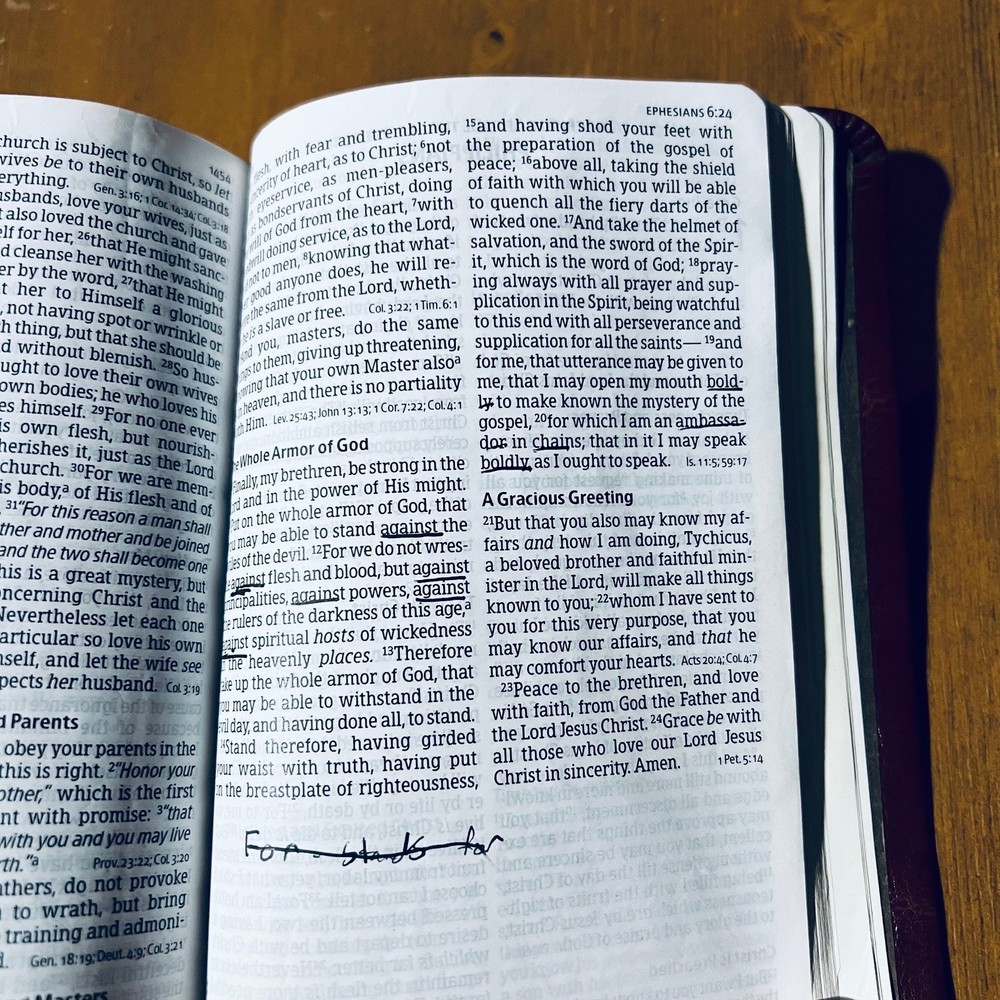 church is subject to Christ, so let
wives be to their own husbands
everything. Gen. 3:16; 1 Cor. 14:34; Col. 3:18
husbands, love your wives, just as
also loved the church and gave
for her, 26that He might sanc-
cleanse her with the washing
by the word, 27that He might
her to Himself a glorious
not having spot or wrinkle or
thing, but that she should be
without blemish. 28So hus-
ought to love their own wives
own bodies; he who loves his
himself. 29For no one ever
own flesh, but nourish-
cherishes it, just as the Lord
church. 30For we are mem-
body,a of His flesh and of
31"For this reason a man shall
father and mother and be joined
and the two shall become one
this is a great mystery, but
concerning Christ and the
Nevertheless let each one
particular so love his own
and let the wife see
respects her husband. Col. 3:19
Parents
obey your parents in the
this is right. 2"Honor your
mother," which is the first
with promise: 3"that
with you and you may live
Prov. 23:22; Col. 3:20
fathers, do not provoke
to wrath, but bring
training and admoni-
Gen. 18:19; Deut. 4:9; Col. 3:21
Masters
1454
EPHESIANS 6:24
flesh, with fear and trembling,
sincerity of heart, as to Christ; 6not
eyeservice, as men-pleasers,
as bondservants of Christ, doing
will of God from the heart, 7with
will doing service, as to the Lord,
not to men, 8knowing that what-
good anyone does, he will re-
the same from the Lord, wheth-
he is a slave or free. Col. 3:22; 1 Tim. 6:1
And you, masters, do the same
things to them, giving up threatening,
knowing that your own Master alsoa
in heaven, and there is no partiality
with Him. Lev. 25:43; John 13:13; 1 Cor. 7:22; Col. 4:1
The Whole Armor of God
Finally, my brethren, be strong in the
Lord and in the power of His might.
Put on the whole armor of God, that
you may be able to stand against the
wiles of the devil. 12For we do not wres-
tle against flesh and blood, but against
principalities, against powers, against
the rulers of the darkness of this age,a
against spiritual hosts of wickedness
in the heavenly places. 13Therefore
take up the whole armor of God, that
you may be able to withstand in the
evil day, and having done all, to stand.
14Stand therefore, having girded
your waist with truth, having put
on the breastplate of righteousness,
15and having shod your feet with
the preparation of the gospel of
peace; 16above all, taking the shield
of faith with which you will be able
to quench all the fiery darts of the
wicked one. 17And take the helmet of
salvation, and the sword of the Spir-
it, which is the word of God; 18pray-
ing always with all prayer and sup-
plication in the Spirit, being watchful
to this end with all perseverance and
supplication for all the saints— 19and
for me, that utterance may be given to
me, that I may open my mouth bold-
ly to make known the mystery of the
gospel, 20for which I am an ambassa-
dor in chains; that in it I may speak
boldly, as I ought to speak. Is. 11:5; 59:17
A Gracious Greeting
21But that you also may know my af-
fairs and how I am doing, Tychicus,
a beloved brother and faithful min-
ister in the Lord, will make all things
known to you; 22whom I have sent to
you for this very purpose, that you
may know our affairs, and that he
may comfort your hearts. Acts 20:4; Col. 4:7
23Peace to the brethren, and love
with faith, from God the Father and
the Lord Jesus Christ. 24Grace be with
all those who love our Lord Jesus
Christ in sincerity. Amen. 1 Pet. 5:14
For stands for